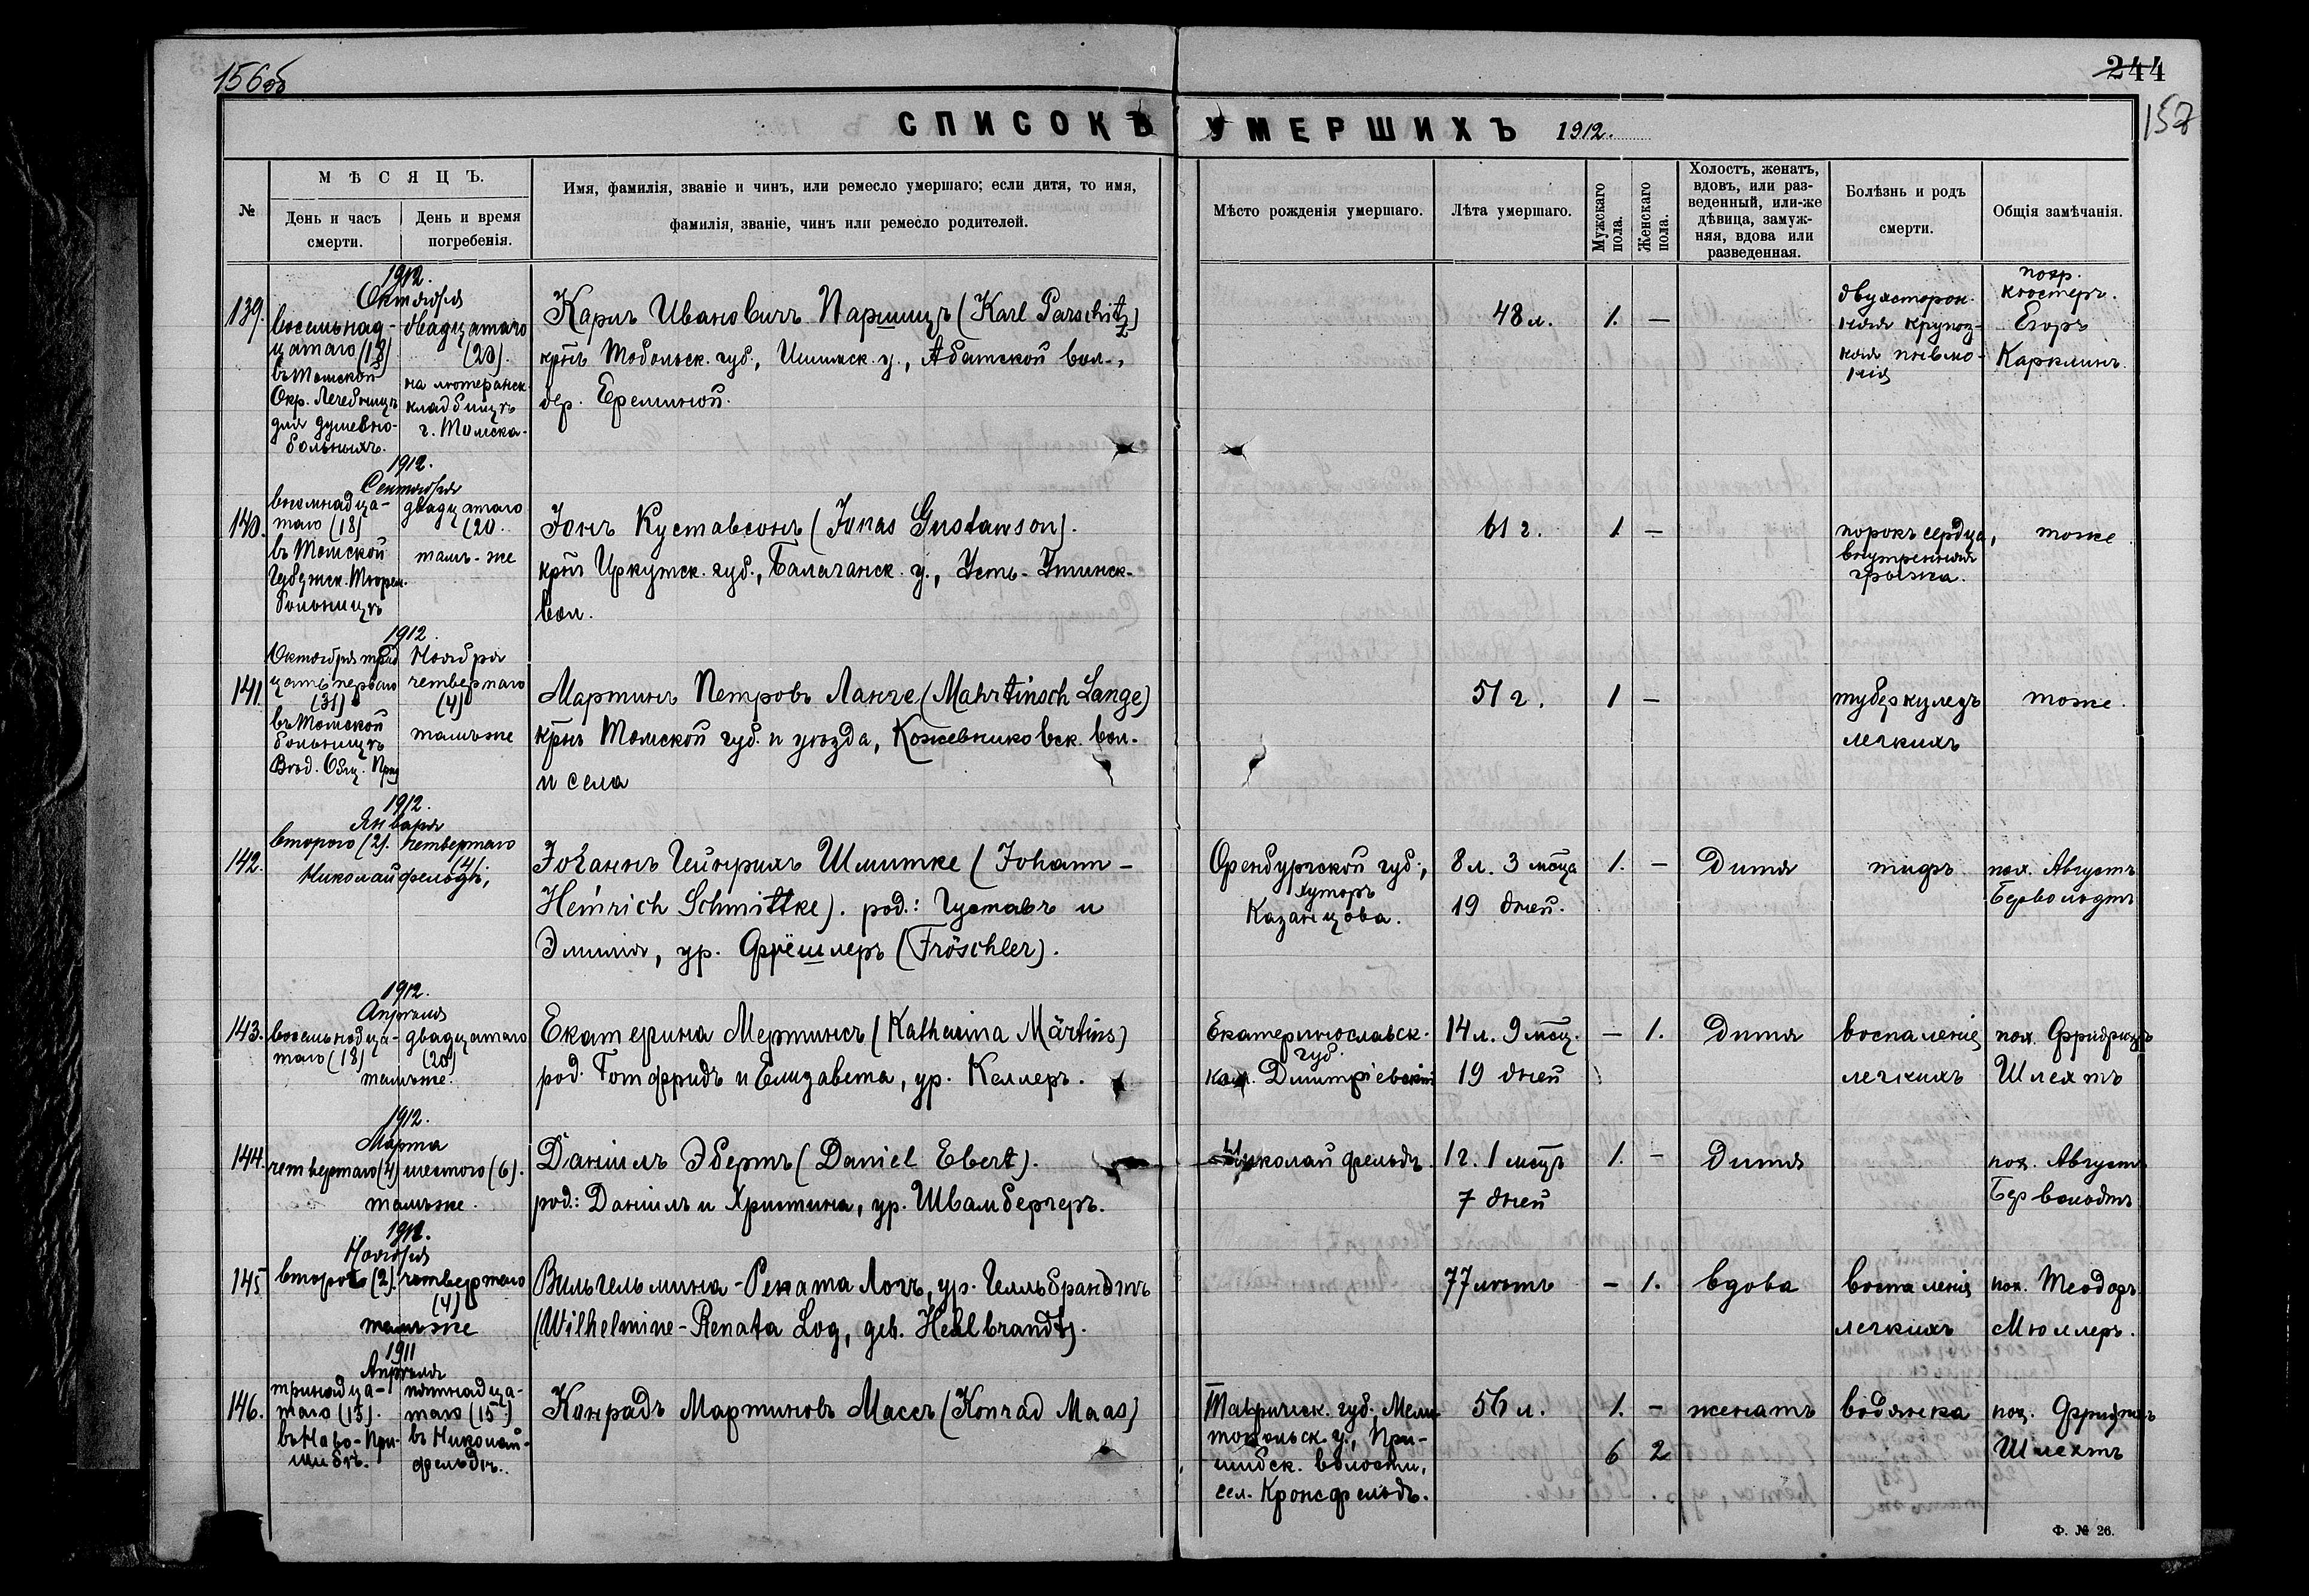 156об
244
157
СПИСОКЪ УМЕРШИХЪ 1912.
№
МѢСЯЦЪ.
День и часъ смерти.
День и время погребенія.
Имя, фамилія, званіе и чинъ, или ремесло умершаго; если дитя, то имя,
фамилія, званіе, чинъ или ремесло родителей.
Мѣсто рожденія умершаго.
Лѣта умершаго.
Мужскаго пола.
Женскаго пола.
Холостъ, женатъ,
вдовъ, или раз-
веденный, или-же
дѣвица, замуж-
няя, вдова или
разведенная.
Болѣзнь и родъ
смерти.
Общія замѣчанія.
139.
1912.
Октября
восемнад-
цатаго (18)
въ Томской
Окр. Лечебницѣ
для душевно-
больныхъ.
двадцатаго
(20).
на лютеранск.
кладбищѣ
г. Томска.
Карлъ Ивановичъ Паршицъ (Karl Parschitz)
крнъ Тобольск. губ., Ишимск. у., Абатской вол.,
дер. Ереминой.
48 л.
1.
—
двухсторон-
няя крупоз-
ная пневмо-
нія
похр.
кюстеръ.
Егоръ
Карклинъ.
140.
1912.
Сентября
восемнадца-
таго (18)
въ Томской
Губернск. Тюрем.
больницѣ
двадцатаго
(20.
тамъ-же
Іонъ Куставсонъ (Jonas Gustawson).
крнъ Иркутск. губ., Балаганск. у., Усть-Удинск.
вол.
61 г.
1
—
порокъ сердца,
внутренняя
грыжа.
тоже
141.
1912.
Октября трид-
цать перваго
(31)
въ Томской
больницѣ
Ноября
четвертаго
(4)
тамъ же
Мартинъ Петровъ Ланге (Mahrtinsch Lange)
крнъ Томской губ. и уѣзда, Кожевниковск. вол.
и села
51 г.
1
—
туберкулезъ
легкихъ
тоже.
142.
1912.
Января
второго (2).
четвертаго
(4).
Николайфельдъ,
Іоганнъ Гейнрихъ Шмитке (Johann-
Heinrich Schmittke). род.: Густавъ и
Эмилія, ур. Фрёшлеръ (Fröschler).
Оренбургской губ.,
хуторъ
Казанцова.
8 л. 3 мѣсца
19 дней.
1.
—
Дитя
тифъ
пох. Августъ
143.
1912.
Апрѣля
восемнадца-
таго (18)
двадцатаго
(20)
тамъже.
Екатерина Мертинсъ (Katharina Märtins)
род. Готфридъ и Елизавета, ур. Келлеръ.
Екатеринославск.
губ.
кол. Дмитріевской
14 л. 9 мѣсц.
19 дней
—
1.
Дитя
воспаленіе
легкихъ
пох. Фридрихъ
Шлехтъ
144.
1912.
Марта
четвертаго (4)
шестого (6).
тамъже.
Даніилъ Эбертъ (Daniel Ebert).
род.: Даніилъ и Христина, ур. Швамбергеръ.
Николайфельдъ.
1 г. 1 мѣсцъ
7 дней
1.
—
Дитя
пох. Августъ
145
1912.
Ноября
второго (2).
четвертаго
(4)
тамъже
Вильгельмина-Рената Логъ, ур. Гелльбрандтъ
(Wilhelmine-Renata Log, geb. Hellbrandt).
77 лѣтъ
—
1.
вдова
воспаленіе
легкихъ
пох. Теодоръ
Мюллеръ.
146.
1911
Апрѣля
тринадца-
таго (13).
въ Ново-При-
шибѣ.
пятнадца-
таго (15.)
въ Николай-
фельдѣ.
Конрадъ Мартиновъ Маасъ (Konrad Maas)
Таврическ. губ., Мели-
топольск. у., При-
шибск. волости,
сел. Кронсфельдъ.
56 л.
1.
—
женатъ
водянка
пох. Фридрихъ
Шлехтъ
6
2
Ф. № 26.